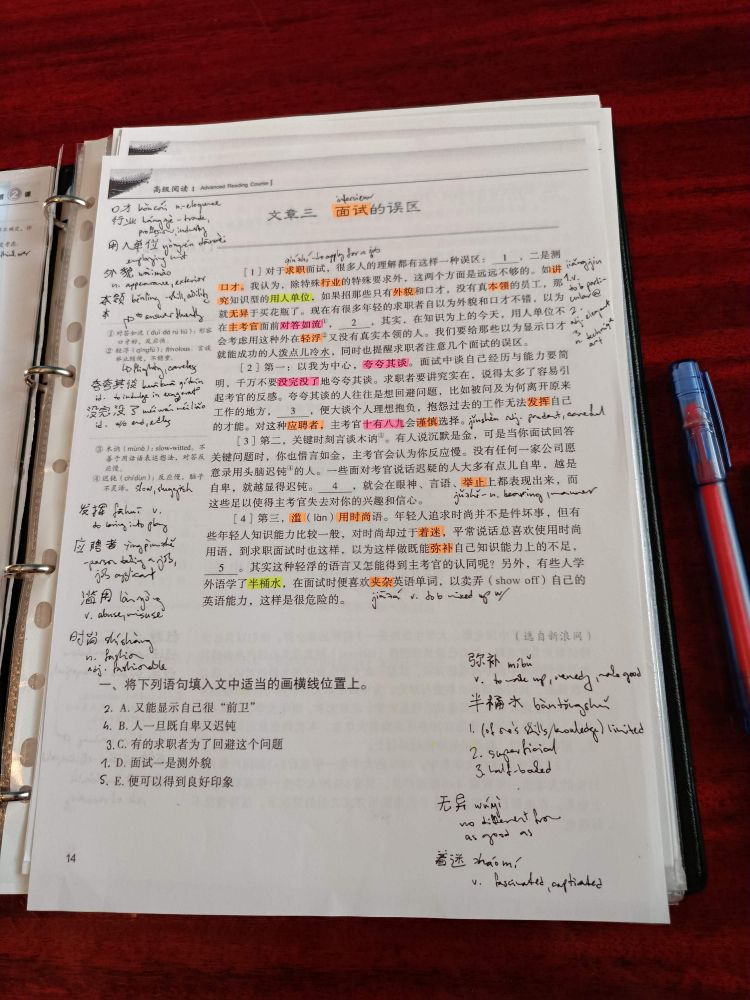 高级阅读 I Advanced Reading Course I
文章三 面试的误区
interview
口才 kǒucái n. eloquence
行业 hángyè - trade,
profession, industry
用人单位 yòngrén dānwèi
employing unit
外貌 wàimào
n. appearance, exterior
本领 běnlǐng - skill, ability
to answer fluently
① 对答如流 (duì dá rú liú): 形容
口才好,反应快。
② 轻浮 (qīngfú): frivolous, 言语
举止随便,不稳重。
夸夸其谈
id. to indulge in exaggerat
没完没了 méi wán méi liǎo
③ 木讷 (mùnè): slow-witted, 不
善于用语语表达想法,对答反
应慢。
④ 迟钝 (chídùn): 反应慢,脑子
不灵活。 slow, sluggish
发挥 fāhuī v.
to bring into play
应聘者 yìngpìnzhě
person taking a job,
job applicant
滥用 lànyòng
v. abuse, misuse
时尚 shíshàng
n. fashion
adj. fashionable
to apply for a job
[1] 对于求职面试,很多人的理解都有这样一种误区: 1 ,二是测
口才。我认为,除特殊行业的特殊要求外,这两个方面是远远不够的。如讲
究知识型的用人单位,如果招那些只有外貌和口才,没有真本领的员工,那
就无异于买花瓶了。现在有很多年轻的求职者自以为外貌和口才不错,以为
在主考官面前对答如流①, 2 ,其实,在知识为上的今天,用人单位不
会考虑用这种外在轻浮②又没有真实本领的人。我们要给那些以为显示口才
就能成功的人泼点儿冷水,同时也提醒求职者注意几个面试的误区。
[2] 第一,以我为中心,夸夸其谈。面试中谈自己经历与能力要简
明,千万不要没完没了地夸夸其谈。求职者要讲究实在,说得太多了容易引
起考官的反感。夸夸其谈的人往往是想回避问题,比如被问及为何离开原来
工作的地方, 3 ,便大谈个人理想抱负,抱怨过去的工作无法发挥自己
的才能。对这种应聘者,主考官十有八九会谨慎选择。 jǐnshèn adj. prudent, careful
[3] 第二,关键时刻言谈木讷③。有人说沉默是金,可是当你面试回答
关键问题时,你也惜言如金,主考官会认为你反应慢。没有任何一家公司愿
意录用头脑迟钝④的人。一些面对考官说话迟疑的人大多有点儿自卑,越是
自卑,就越显得迟钝。 4 ,就会在眼神、言语、举止上都表现出来,而
这些足以使得主考官失去对你的兴趣和信心。
jǔzhǐ - n. bearing, manner
[4] 第三,滥(làn)用时尚语。年轻人追求时尚并不是件坏事,但有
些年轻人知识能力比较一般,对时尚却过于着迷,平常说话总喜欢使用时尚
用语,到求职面试时也这样,以为这样做既能弥补自己知识能力上的不足,
5 。其实这种轻浮的语言又怎能得到主考官的认同呢?另外,有些人学
外语学了半桶水,在面试时便喜欢夹杂英语单词,以卖弄(show off)自己的
英语能力,这样是很危险的。 jiāzá v. to b mixed up w/
(选自新浪网)
一、将下列语句填入文中适当的画横线位置上。
2. A. 又能显示自己很“前卫”
4. B. 人一旦既自卑又迟钝
3. C. 有的求职者为了回避这个问题
1. D. 面试一是测外貌
5. E. 便可以得到良好印象
弥补 míbǔ
v. to make up, remedy, make good
半桶水 bàntǒngshuǐ
1. (of one's skills/knowledge) limited
2. superficial
3. half-baked
无异 wúyì
no different from
as good as
着迷 zháomí
v. fascinated, captivated
14